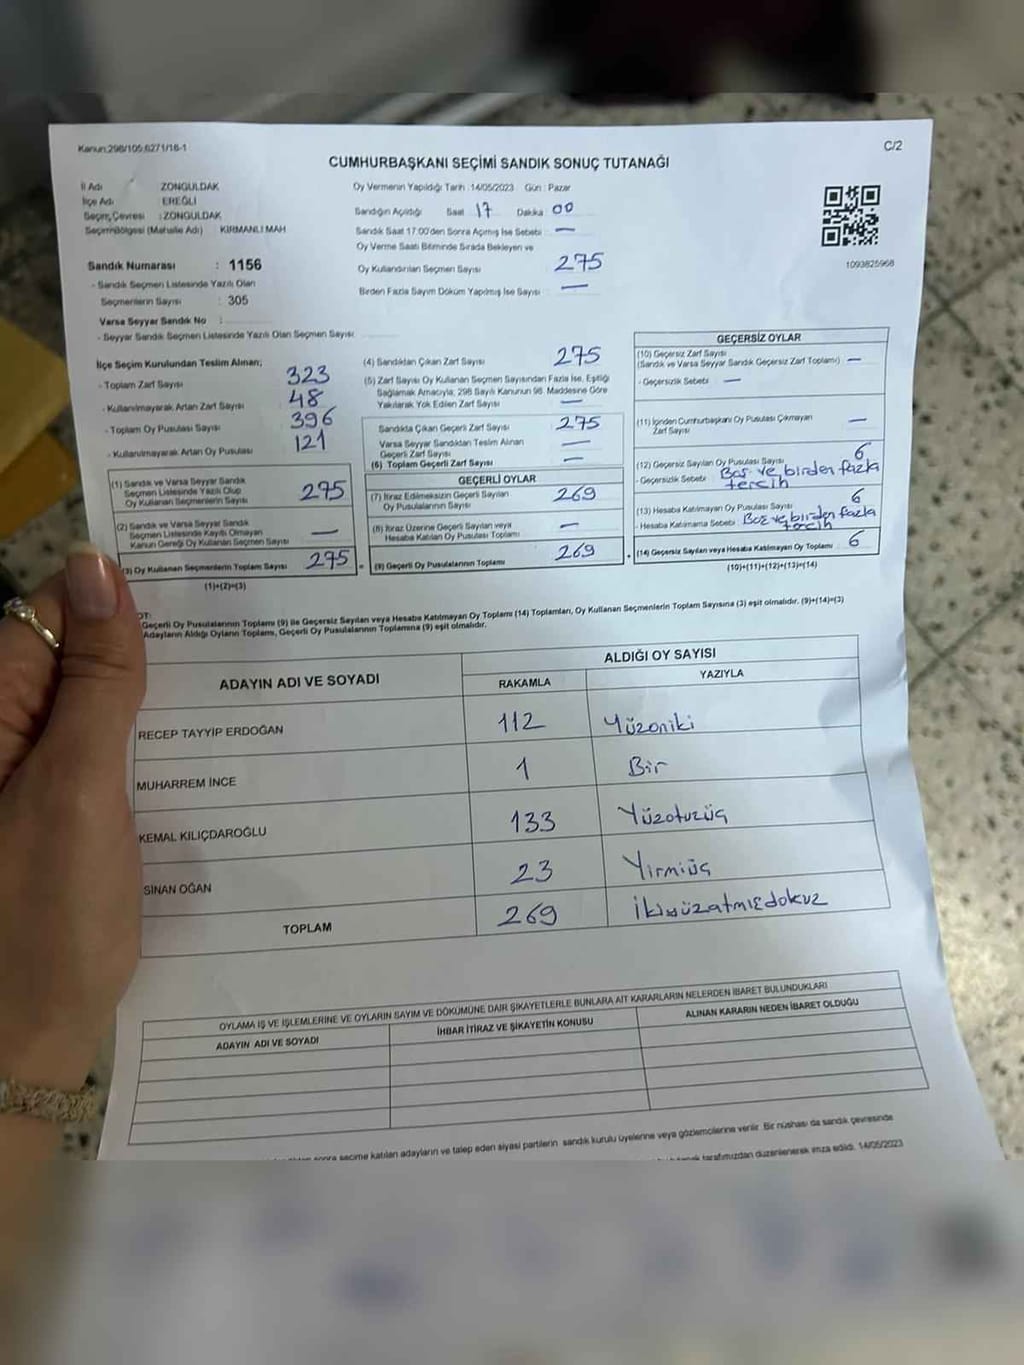 Kanun:298/105,6271/18-1
C/2
CUMHURBAŞKANI SEÇİMİ SANDIK SONUÇ TUTANAĞI
İl Adı ZONGULDAK
İlçe Adı : EREĞLİ
Seçim Çevresi : ZONGULDAK
Seçim Bölgesi (Mahalle Adı) KIRMANLI MAH
Sandık Numarası : 1156
- Sandık Seçmen Listesinde Yazılı Olan
Seçmenlerin Sayısı : 305
Varsa Seyyar Sandık No :
- Seyyar Sandık Seçmen Listesinde Yazılı Olan Seçmen Sayısı
Oy Vermenin Yapıldığı Tarih :14/05/2023 Gün : Pazar
Sandığın Açıldığı Saat 17 Dakika 00
Sandık Saat 17:00'den Sonra Açımış İse Sebebi : —
Oy Verme Saati Bitiminde Sırada Bekleyen ve
Oy Kullandırılan Seçmen Sayısı 275
Birden Fazla Sayım Döküm Yapılmış İse Sayısı : —
1093825968
İlçe Seçim Kurulundan Teslim Alınan;
- Toplam Zarf Sayısı 323
- Kullanılmayarak Artan Zarf Sayısı 48
- Toplam Oy Pusulası Sayısı 396
- Kullanılmayarak Artan Oy Pusulası 121
(1) Sandık ve Varsa Seyyar Sandık
Seçmen Listesinde Yazılı Olup
Oy Kullanan Seçmenlerin Sayısı 275
(2) Sandık ve Varsa Seyyar Sandık
Seçmen Listesinde Kayıtlı Olmayan
Kanun Gereği Oy Kullanan Seçmen Sayısı —
(3) Oy Kullanan Seçmenlerin Toplam Sayısı 275
(1)+(2)=(3)
(4) Sandıktan Çıkan Zarf Sayısı 275
(5) Zarf Sayısı Oy Kullanan Seçmen Sayısından Fazla İse, Eşitliği
Sağlamak Amacıyla, 298 Sayılı Kanunun 98. Maddesine Göre
Yakılarak Yok Edilen Zarf Sayısı —
Sandıkta Çıkan Geçerli Zarf Sayısı 275
Varsa Seyyar Sandıktan Teslim Alınan
Geçerli Zarf Sayısı —
(6) Toplam Geçerli Zarf Sayısı —
GEÇERLİ OYLAR
(7) İtiraz Edilmeksizin Geçerli Sayılan
Oy Pusulalarının Sayısı 269
(8) İtiraz Üzerine Geçerli Sayılan veya
Hesaba Katılan Oy Pusulası Toplamı —
(9) Geçerli Oy Pusulalarının Toplamı 269
GEÇERSİZ OYLAR
(10) Geçersiz Zarf Sayısı
(Sandık ve Varsa Seyyar Sandık Geçersiz Zarf Toplamı) —
- Geçersizlik Sebebi : —
(11) İçinden Cumhurbaşkanı Oy Pusulası Çıkmayan
Zarf Sayısı —
(12) Geçersiz Sayılan Oy Pusulası Sayısı 6
- Geçersizlik Sebebi Boş ve birden fazla
tercih
(13) Hesaba Katılmayan Oy Pusulası Sayısı 6
- Hesaba Katılmama Sebebi : Boş ve birden fazla
tercih
(14) Geçersiz Sayılan veya Hesaba Katılmayan Oy Toplamı 6
(10)+(11)+(12)+(13)=(14)
OT:
Geçerli Oy Pusulalarının Toplamı (9) ile Geçersiz Sayılan veya Hesaba Katılmayan Oy Toplamı (14) Toplamları, Oy Kullanan Seçmenlerin Toplam Sayısına (3) eşit olmalıdır. (9)+(14)=(3)
Adayların Aldığı Oyların Toplamı, Geçerli Oy Pusulalarının Toplamına (9) eşit olmalıdır.
ADAYIN ADI VE SOYADI
ALDIĞI OY SAYISI
RAKAMLA YAZIYLA
RECEP TAYYİP ERDOĞAN 112 Yüzoniki
MUHARREM İNCE 1 Bir
KEMAL KILIÇDAROĞLU 133 Yüzotuzüç
SİNAN OĞAN 23 Yirmiüç
TOPLAM 269 İkiyüzatmışdokuz
OYLAMA İŞ VE İŞLEMLERİNE VE OYLARIN SAYIM VE DÖKÜMÜNE DAİR ŞİKAYETLERLE BUNLARA AİT KARARLARIN NELERDEN İBARET BULUNDUKLARI
ADAYIN ADI VE SOYADI İHBAR İTİRAZ VE ŞİKAYETİN KONUSU ALINAN KARARIN NEDEN İBARET OLDUĞU
sonra seçime katılan adayların ve talep eden siyasi partilerin sandık kurulu üyelerine veya gözlemcilerine verilir. Bir nüshası da sandık çevresinde
tarafımızdan düzenlenerek imza edildi. 14/05/2023